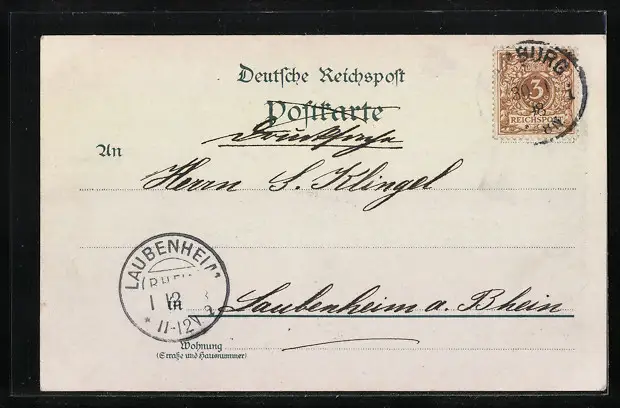 BURG
3
REICHSPOST
Deutsche Reichspost
Postkarte
Drucksache
An
Herrn S. Klingel
LAUBENHEIM
(RHEIN
1 12
* 11-12V
in Laubenheim a. Rhein
Wohnung
(Straße und Hausnummer)